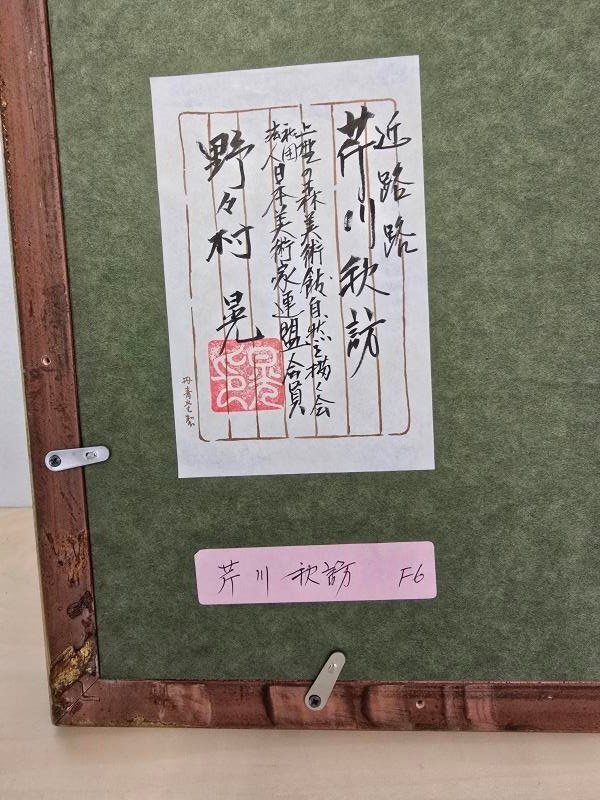 近路路
芹川秋訪
上野の森美術館自然を描く会
社団法人日本美術家連盟会員
野々村 晃
丹青堂製
芹川 秋訪 F6